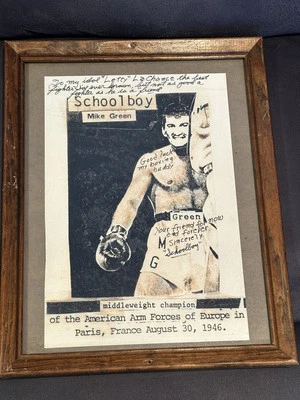 To my idol "Lefty" LaChance the best
fighter I've ever known, but not as good a
fighter as he is a friend
Schoolboy
Mike Green
Good luck
my boxing
buddy
Green
Your friend for now
and forever
Sincerely
"Schoolboy"
M
G
middleweight champion
of the American Arm Forces of Europe in
Paris, France August 30, 1946.